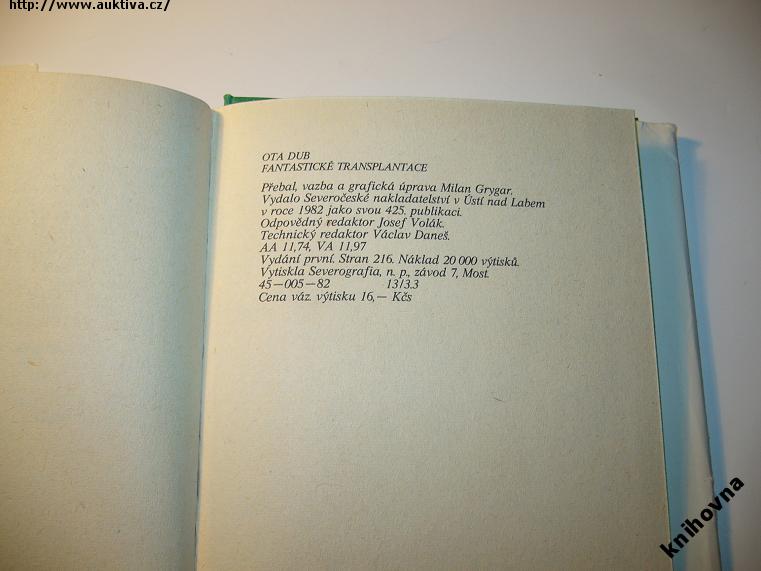 http://www.auktiva.cz/
OTA DUB
FANTASTICKÉ TRANSPLANTACE
Přebal, vazba a grafická úprava Milan Grygar.
Vydalo Severočeské nakladatelství v Ústí nad Labem
v roce 1982 jako svou 425. publikaci.
Odpovědný redaktor Josef Volák.
Technický redaktor Václav Daneš.
AA 11,74, VA 11,97
Vydání první. Stran 216. Náklad 20 000 výtisků.
Vytiskla Severografia, n. p., závod 7, Most.
45—005—82 13/3.3
Cena váz. výtisku 16,— Kčs
knihovna